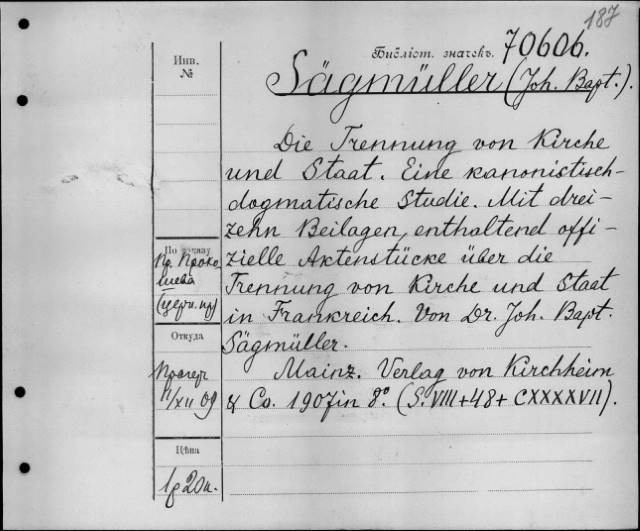 187
Библіот. значекъ. 70606.
Инв.
№
Sägmüller (Joh. Bapt.).
Die Trennung von Kirche
und Staat. Eine kanonistisch-
dogmatische Studie. Mit drei-
zehn Beilagen, enthaltend offi-
zielle Aktenstücke über die
Trennung von Kirche und Staat
in Frankreich. Von Dr. Joh. Bapt.
Sägmüller.
Mainz. Verlag von Kirchheim
& Co. 1907 in 8°. (S. VIII+48+CXXXXVII).
По
Пр. Проко-
шева
(церк. пр)
Откуда
11/XII 09
Цѣна
1р 20к.